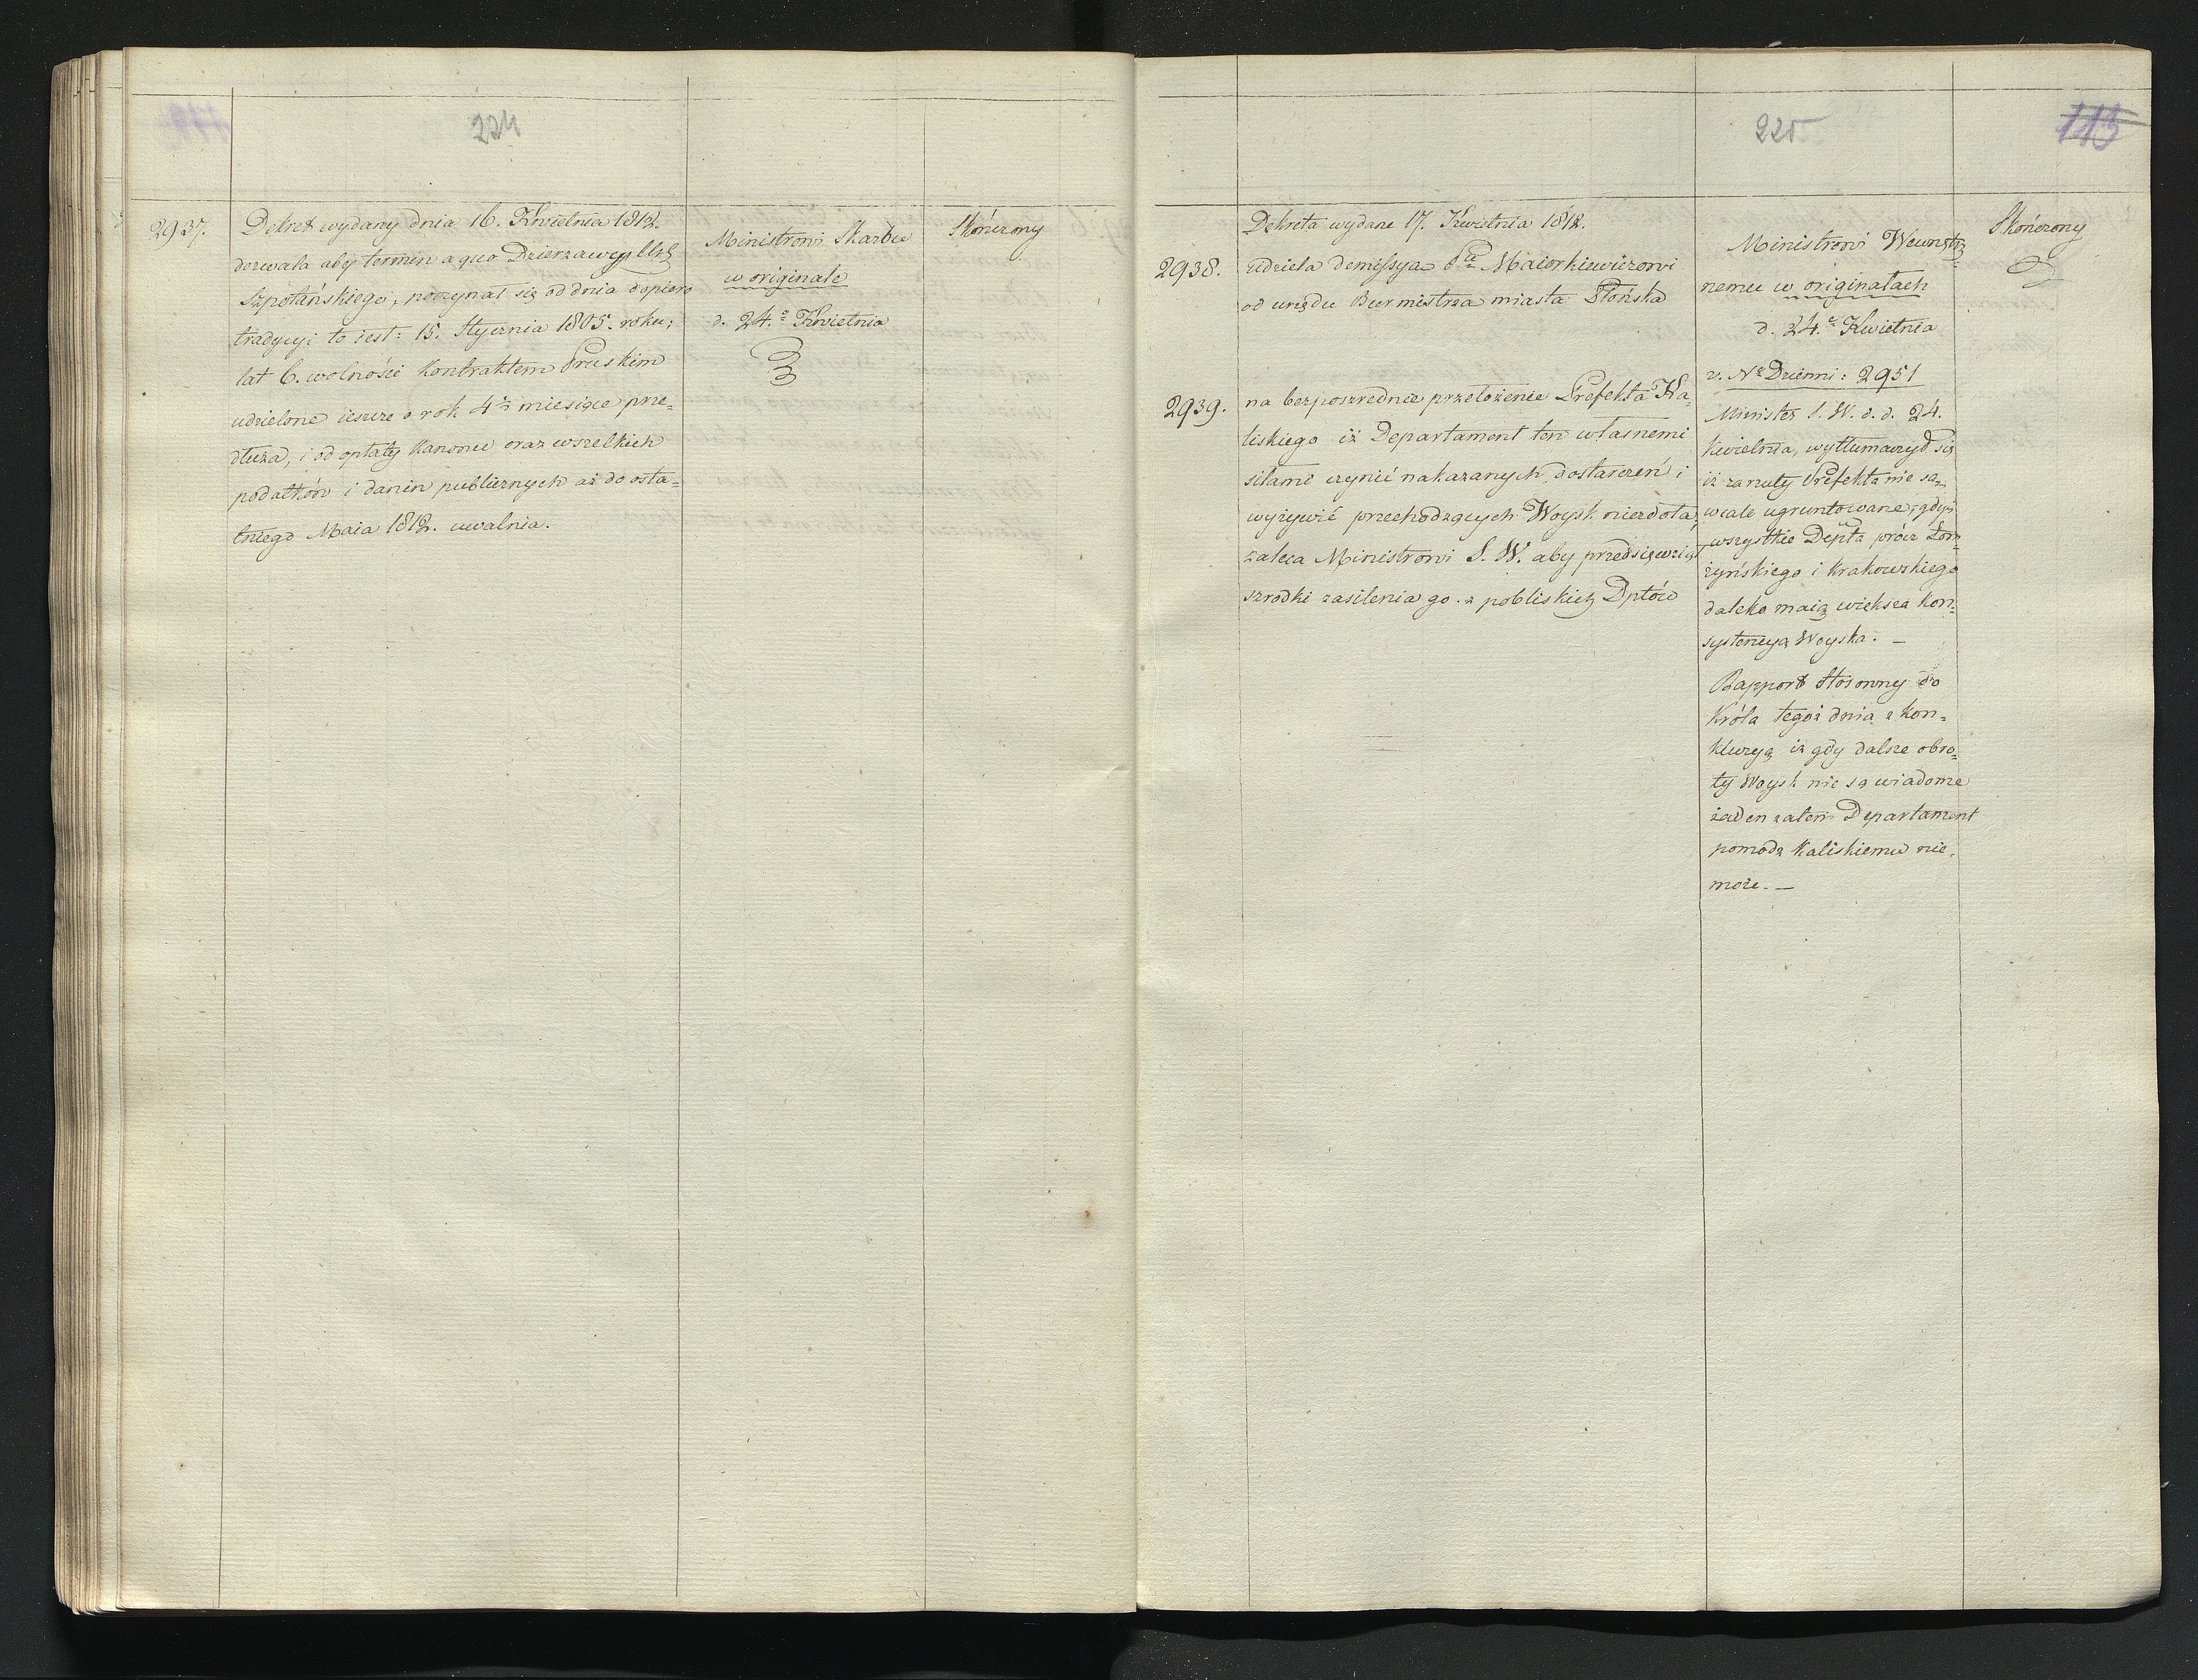 224
2937.
Dekret wydany dnia 16. Kwietnia 1812.
dozwala aby termin a quo Dzierzawcy
Szpotańskiego, poczynał się od dnia dopiero
tradycyi to iest: 15. Stycznia 1805. roku;
lat 6. wolności Kontraktem Pruskim
udzielone ieszcze o rok 4½ miesiące prze=
dłuża, i od opłaty Kanonu oraz wszelkich
podatków i danin publicznych aż do osta=
tniego Maia 1812. uwalnia.
Ministrowi Skarbu
w originale
d. 24. Kwietnia
Skończony
225
113
Dekreta wydane 17. Kwietnia 1812.
2938.
udziela demissya Maiorkiewiczowi
od urzędu Burmistrza miasta Płońska
2939.
na bezposzrednie przełożenie Prefekta Ka=
liskiego iż Departament ten własnemi
siłami czynić nakazanych dostarczeń i
wyżywić przechodzących Woysk niezdoła,
zaleca Ministrowi S. W. aby przedsięwziął
szrodki zasilenia go z pobliskich Dptów
Ministrowi Wewnętrz=
nemu w originałach
d. 24. Kwietnia
v. Nr Dzienni: 2951
Minister S. W. d. d. 24.
Kwietnia, wytłumaczył się
iż zarzuty Prefekta nie są
wcale ugruntowane, gdyż
wszystkie Depta prócz Łom=
żyńskiego i Krakowskiego
daleko maią wieksza kon=
systencyą Woyska. —
Rapport stosowny do
Króla tegoż dnia z kon=
kluzyą iż gdy dalsze obro=
ty Woysk nie są wiadome
żaden zatem Departament
pomodz Kaliskiemu nie=
może. —
Skończony